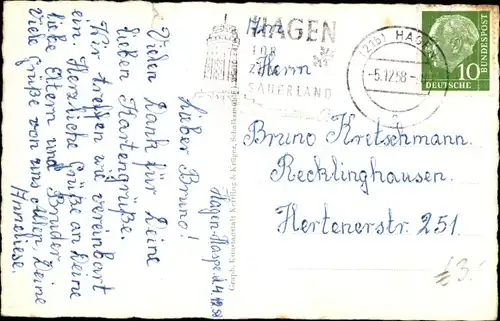 Hagen-Haspe d. 4.12.58
Lieber Bruno!
Vielen Dank für Deine
lieben Kartengrüße.
Wir treffen wie vereinbart
ein. Herzliche Grüße an Deine
liebe Eltern und Bruder.
Viele Grüße von uns Allen, Deine
Anneliese.
HAGEN
TOR
ZUM
SAUERLAND
(21b) HAGEN
-5.12.58-
DEUTSCHE
BUNDESPOST
10
Herrn
Bruno Kretschmann.
Recklinghausen.
Hertenerstr. 251.
Graph. Kunstanstalt Kettling & Krüger, Schalksmühle